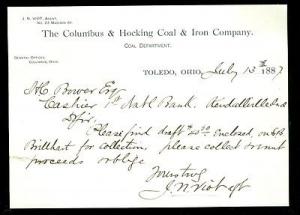 J. N. VIOT, AGENT,
No. 23 MADISON ST.
The Columbus & Hocking Coal & Iron Company.
COAL DEPARTMENT.
GENERAL OFFICE,
COLUMBUS, OHIO.
TOLEDO, OHIO, July 13 1887
A C Bower Esq
Cashier 1st Natl Bank. Kendallville Ind
D Sir,
Please find draft enclosed, on
Brillhart for collection, please collect & remit
proceeds & oblige
Yours truly
J. N. Viot agt